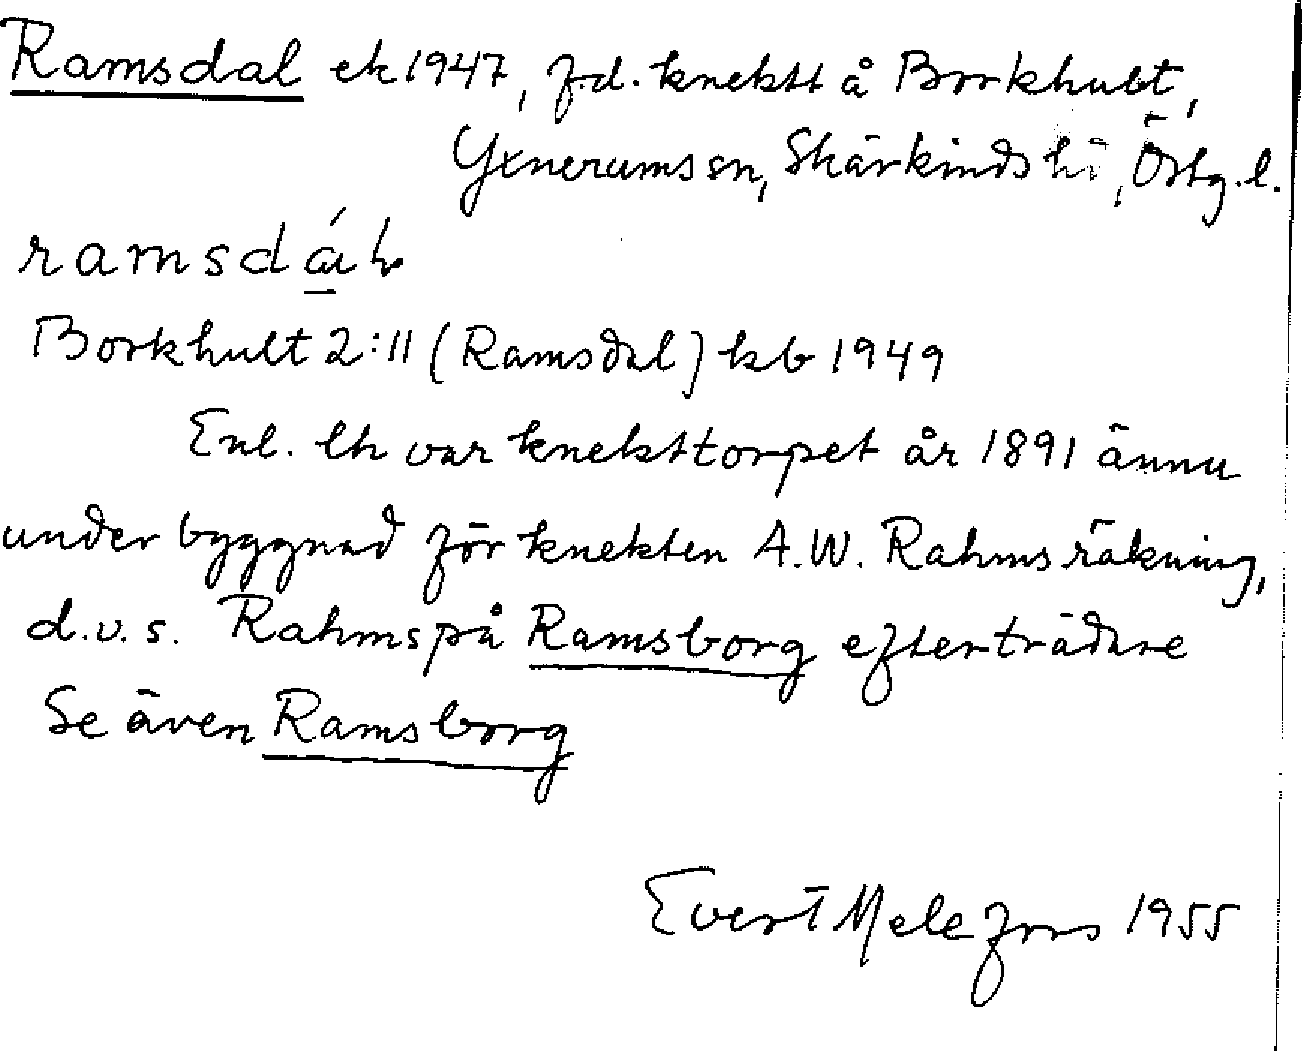 Ramsdal ek 1947, f.d. knektt å Borkhult,
Yxnerums sn, Skärkinds hd, Östg.l.
ramsdáɫ
Borkhult 2:11 (Ramsdal) kb 1949
Enl. lh var knekttorpet år 1891 ännu
under byggnad för knekten A.W. Rahms räkning,
d.v.s. Rahms på Ramsborg efterträdare
Se även Ramsborg
Evert Melefors 1955